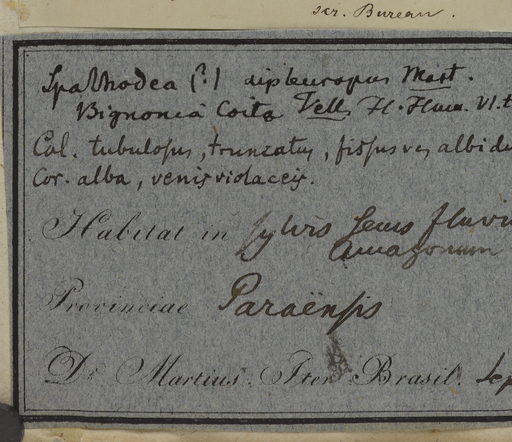 scr. Bureau.
Spathodea (?) dipleuropus Mart.
Bignonia Coita Vell. Fl. Flum. VI. t
Cal. tubulosus, truncatus, fissus v.
Cor. alba, venis violaceis.
Habitat in sylvis secus fluvi
Amazonum
Provinciae Paraënsis
Dr. Martius. Iter Brasil. Sep